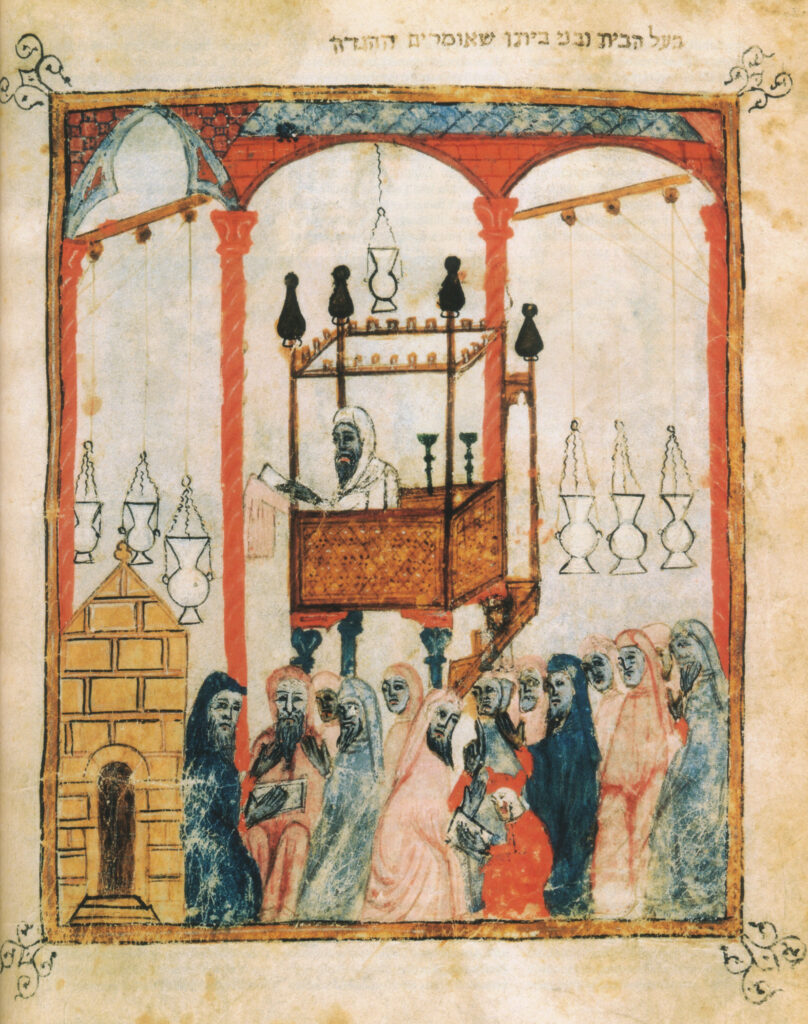 בעל הבית ובני ביתו שאומרים ההגדה